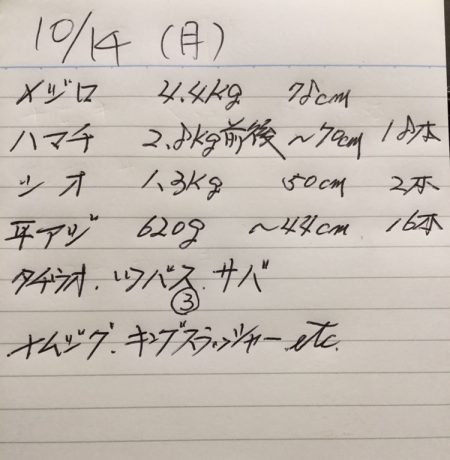 10/14 (月)
メジロ 4.4kg 78cm
ハマチ 2.8kg前後 ~70cm 18本
ツオ 1.3kg 50cm 2本
平アジ 620g ~44cm 16本
タチウオ.ツバス.サバ
③
ナムジグ.キングスラッシャー.etc.